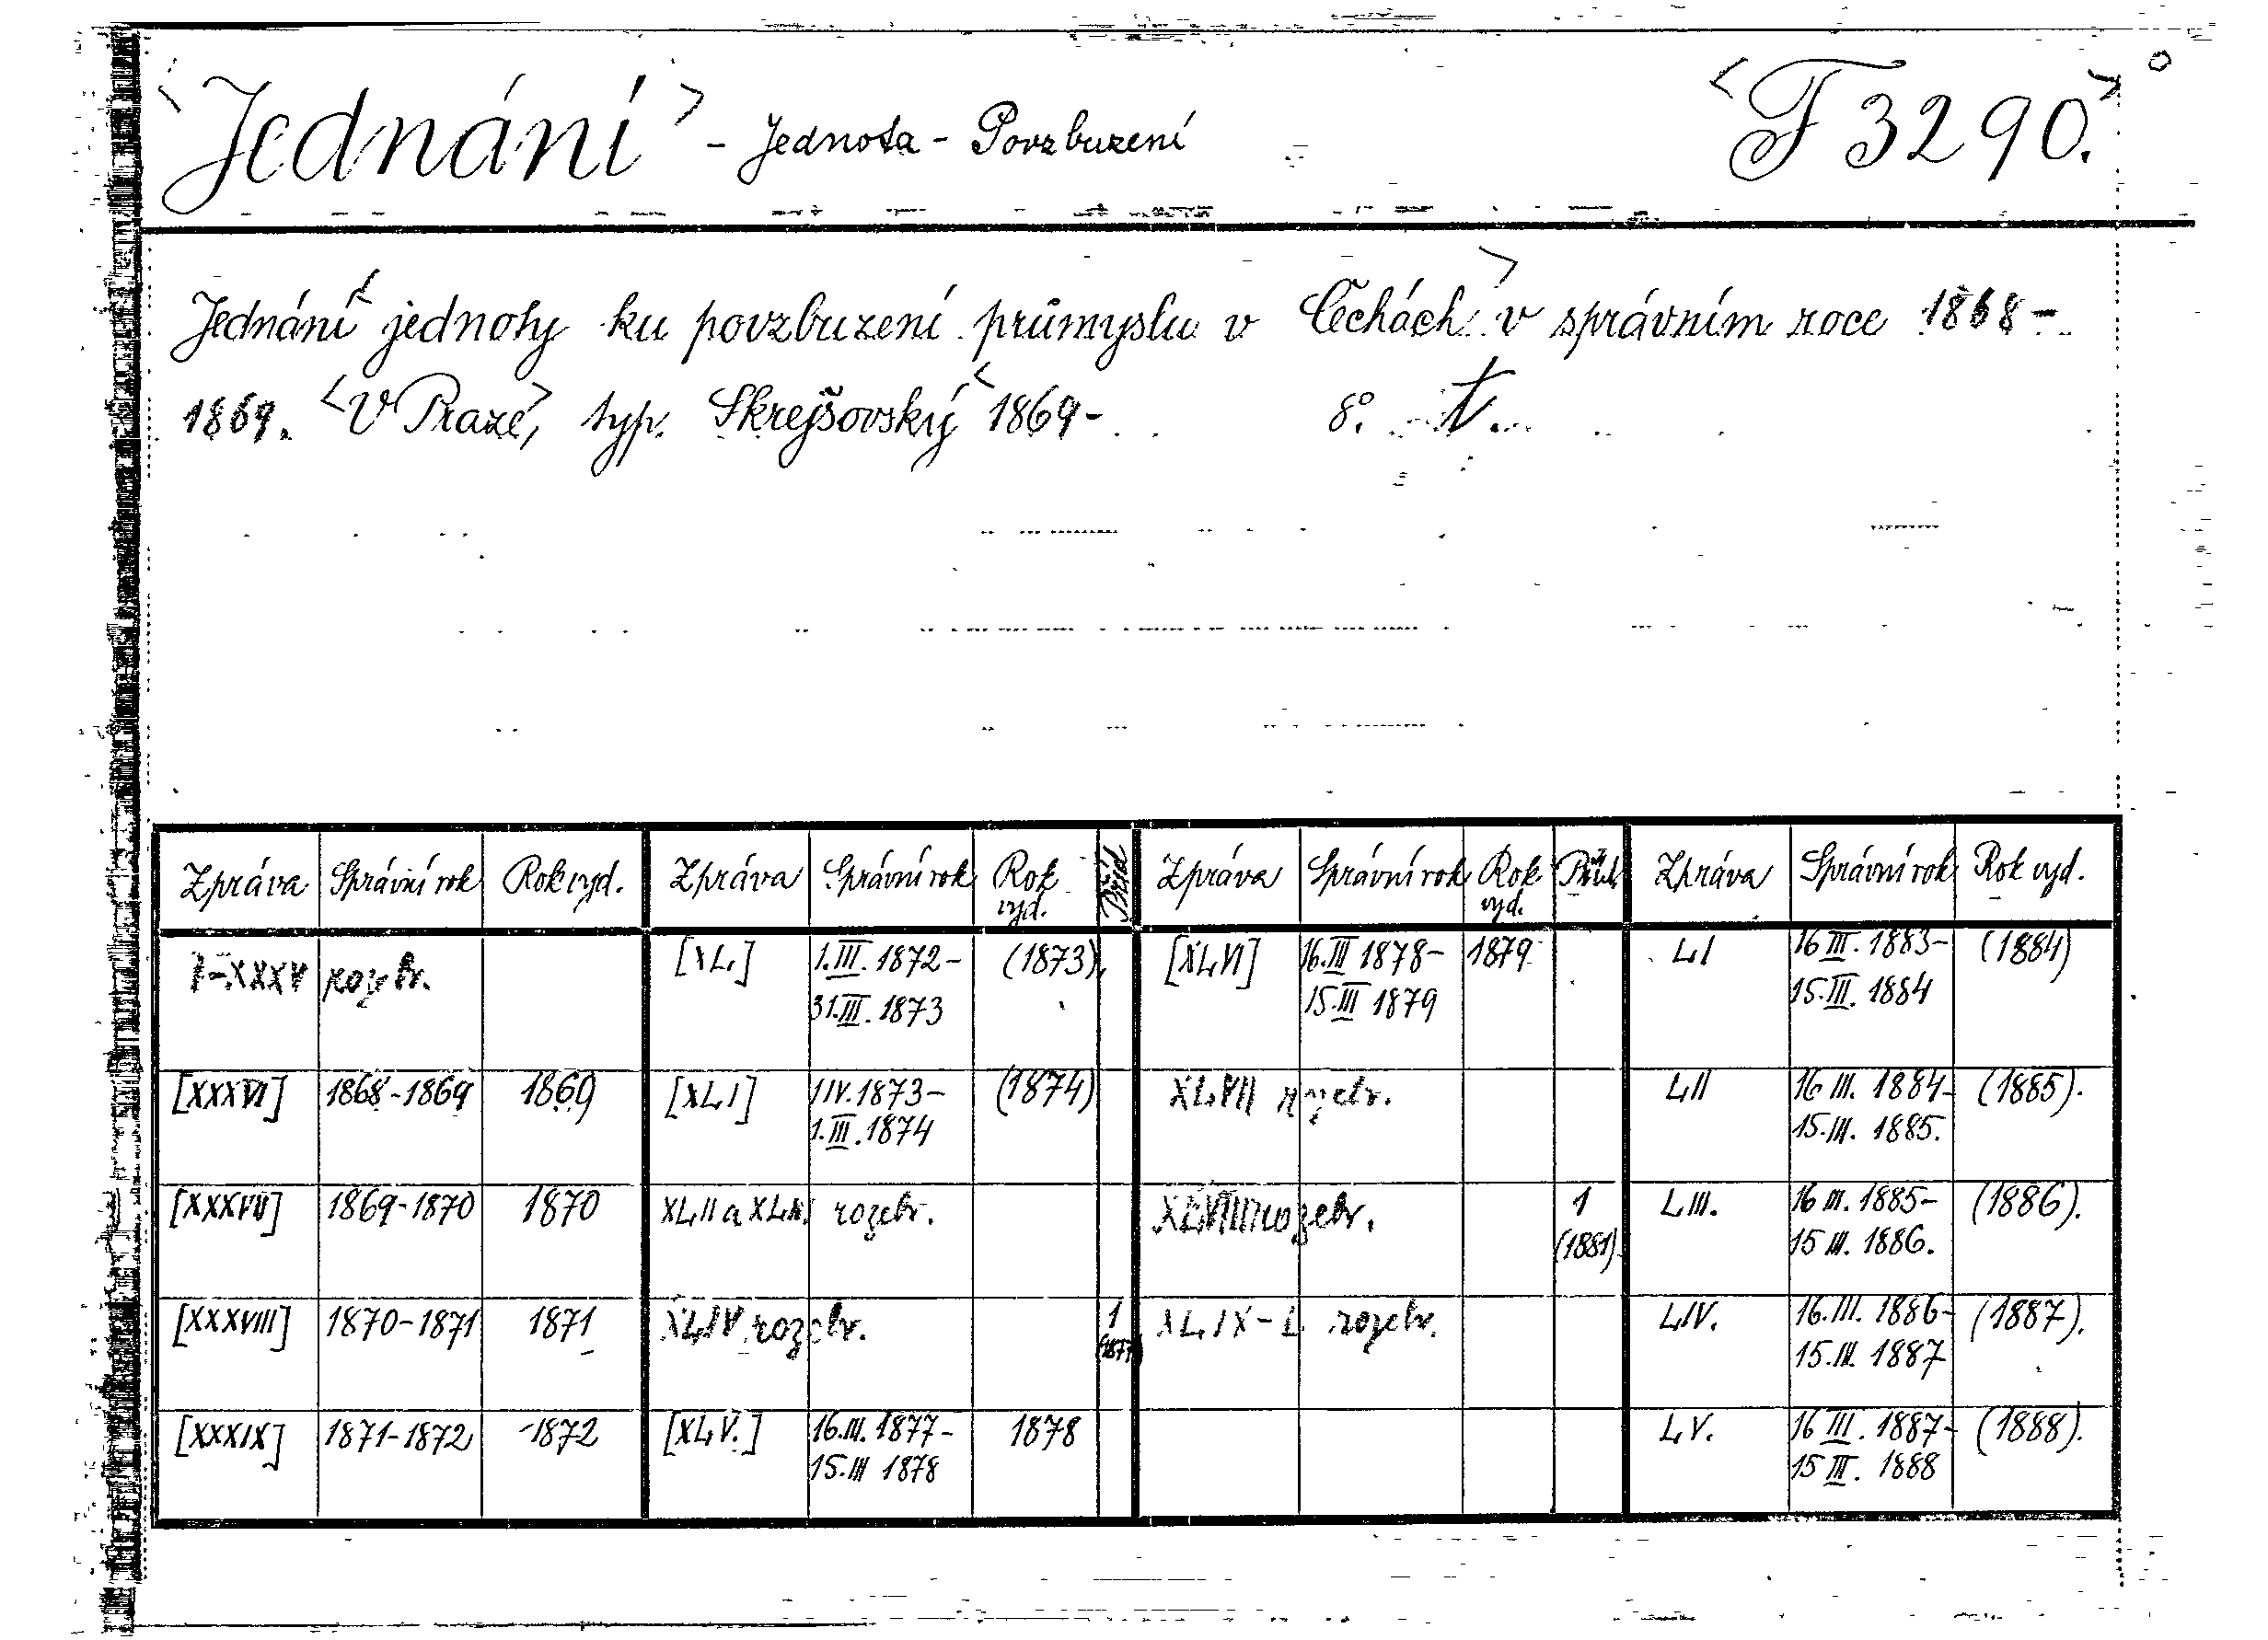 <Jednání> - Jednota - Povzbuzení <F 3290.>
Jednání <jednoty ku povzbuzení průmyslu v Čechách> v správním roce 1868-
1869. <V Praze>, typ. Skrejšovský < 1869- 8°. T.
Zpráva Správní rok Rok vyd. Zpráva Správní rok Rok vyd. Zpráva Správní rok Rok vyd. Zpráva Správní rok Rok vyd.
I-XXXV rozebr. [XL] 1.III.1872- (1873). [XLVI] 16.III 1878- 1879 LI 16 III. 1883- (1884)
31.III.1873 15.III 1879 15.III. 1884
[XXXVI] 1868-1869 1869 [XLI] 1 IV.1873- (1874) XLVII rozebr. LII 16 III. 1884- (1885).
1.III.1874 15.III. 1885.
[XXXVII] 1869-1870 1870 XLII a XLIII. rozebr. XLVIII rozebr. 1 LIII. 16 III. 1885- (1886).
(1881) 15 III. 1886.
[XXXVIII] 1870-1871 1871 XLIV rozebr. 1 XLIX-L rozebr. LIV. 16.III. 1886- (1887).
(1877) 15.III. 1887
[XXXIX] 1871-1872 1872 [XLV.] 16.III. 1877- 1878 LV. 16 III. 1887- (1888).
15.III 1878 15 III. 1888